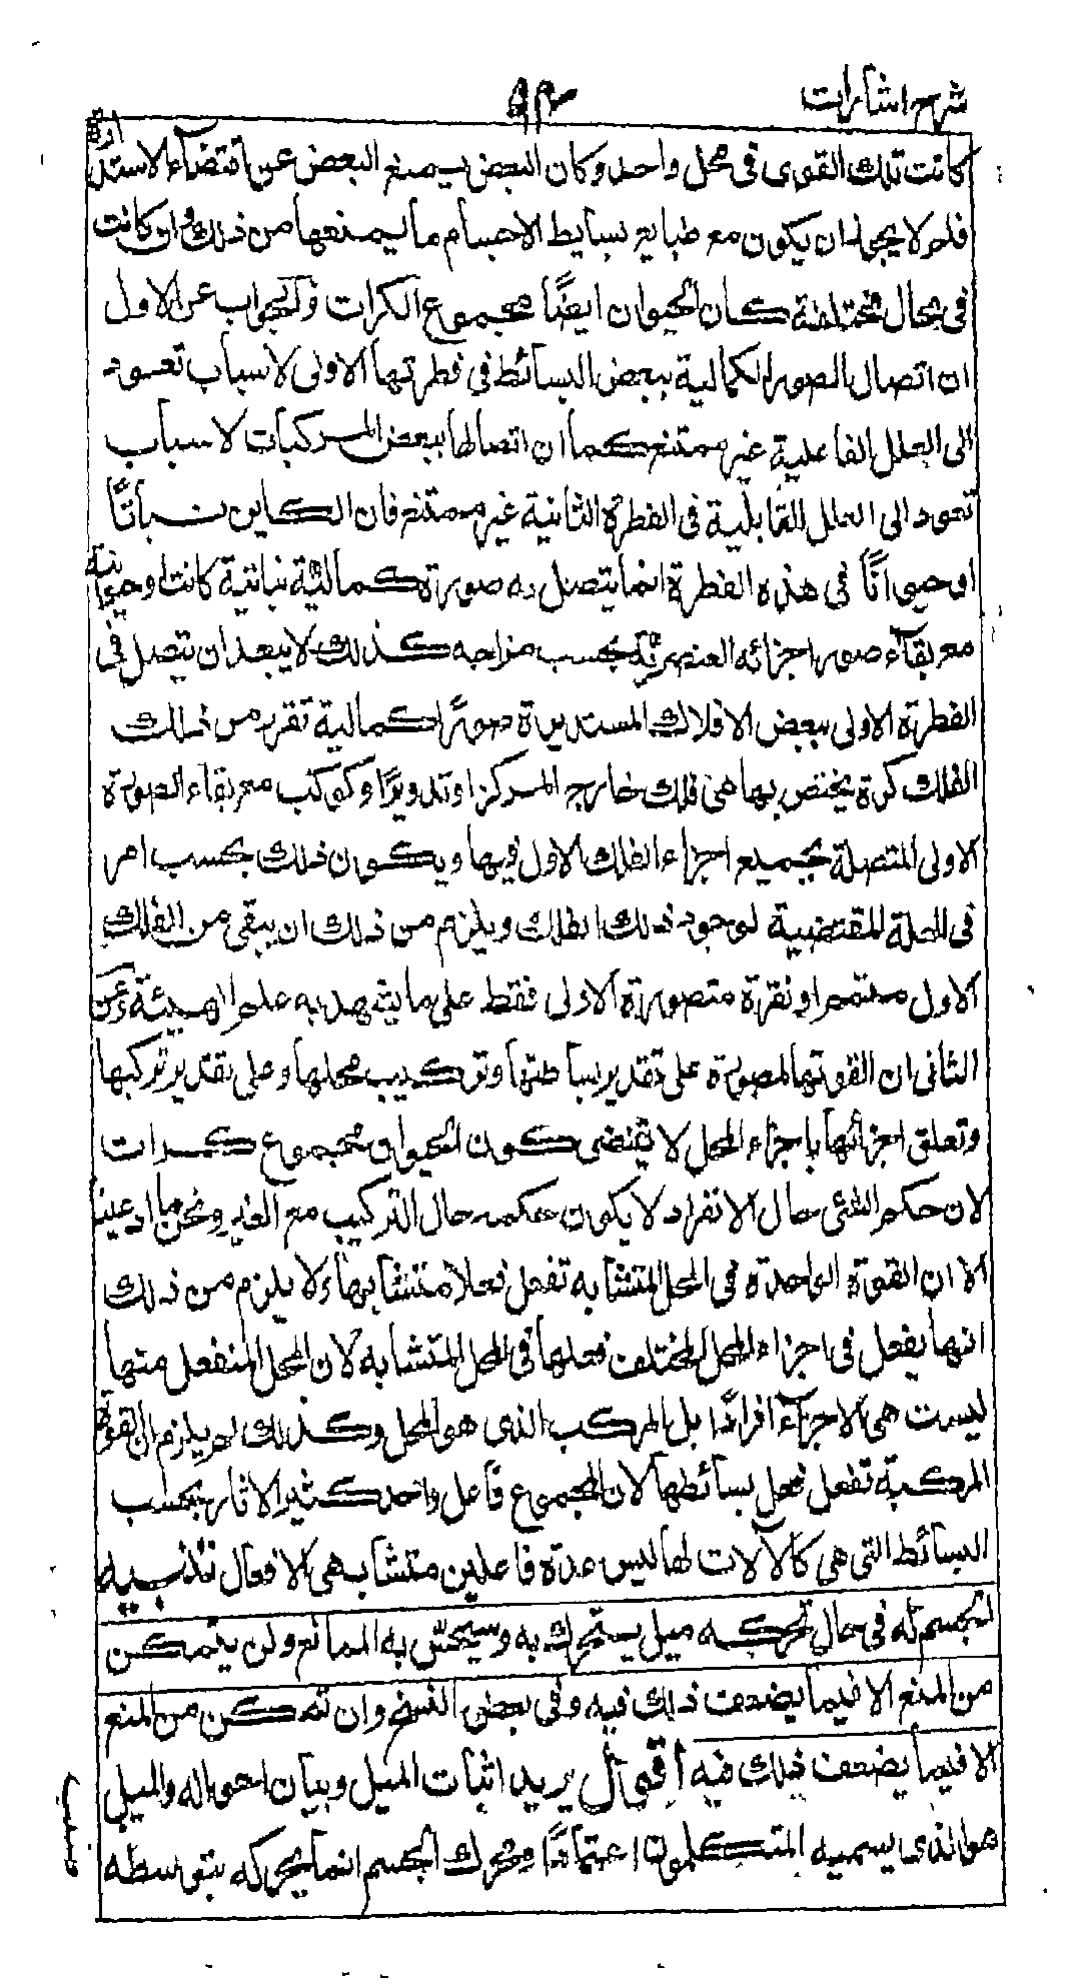 شرح اشارات
كانت تلك القوى فى محل واحد وكان البعض يمنع البعض عن اقتضاء الاستدارة
فلم لا يجوز ان يكون مع طبايع بسايط الاجسام ما يمنعها من ذلك وان كانت
فى محال مختلفة كان الحيوان ايضًا مجموع الكرات والجواب عن الاول
ان اتصال الصور الكمالية ببعض البسائط فى فطرتها الاولى لاسباب تعود
الى العلل الفاعلية غير ممتنع كما ان اتصالها ببعض المركبات لاسباب
تعود الى العلل القابلية فى الفطرة الثانية غير ممتنع فان الكاين نباتًا
او حيوانًا فى هذه الفطرة انما يتصل به صورة كمالية نباتية كانت او حيوانية
مع بقآء صور اجزائه العنصرية بحسب مزاجه كذلك لا يبعد ان يتصل فى
الفطرة الاولى ببعض الافلاك المستديرة صورًا كمالية تقرر من ذلك
الفلك كرة يختص بها هى فلك خارج المركز او تدويرًا وكوكب مع بقاء الصورة
الاولى المتصلة بجميع اجزاء الفلك الاول فيها ويكون ذلك بحسب امر
فى العلة المقتضية لوجود ذلك الفلك ويلزم من ذلك ان يبقى من الفلك
الاول متمم او نقرة متصورة الاولى فقط على ما يشهد به علم الهيئة وعن
الثانى ان القوة المصورة على تقدير بساطتها وتركيب محلها وعلى تقدير تركبها
وتعلق اجزائها باجزاء المحل لا يقتضى كون الحيوان مجموع كرات
لان حكم الشئى حال الانفراد لا يكون حكمه حال التركيب مع الغير ونحن ما ادعينا
الا ان القوة الواحدة فى المحل المتشابه تفعل فعلا متشابهًا ولا يلزم من ذلك
انها يفعل فى اجزاء المحل المختلف فعلها فى المحل المتشابه لان المحل المنفعل منها
ليست هى الاجزآء افرادًا بل المركب الذى هو المحل وكذلك لم يلزم ان القوة
المركبة تفعل فعل بسائطها لان المجموع فاعل واحد كثير الاثار بحسب
البسائط التى هى كالآلات لها ليس عدة فاعلين متشابهى الافعال تنبيه
الجسم له فى حال تحركه ميل يستحرك به ويحسّ به الممانع ولن يتمكن
من المنع الا فيما يضعف ذلك فيه وفى بعض النسخ وان تمكن من المنع
الا فيما يضعف ذلك فيه اقول يريد اثبات الميل وبيان احواله والميل
هو الذى يسميه المتكلمون اعتمادًا ومحرك الجسم انما يحركه بتوسطه